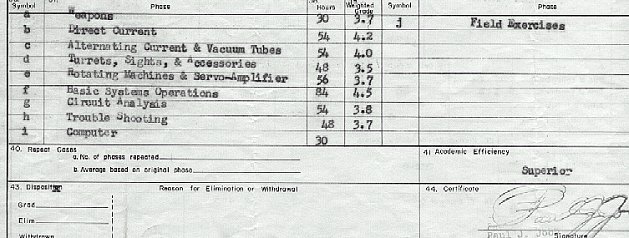 Symbol Phase Hours Weighted Grade Symbol Phase
a Weapons 30 3.7 j Field Exercises
b Direct Current 54 4.2
c Alternating Current & Vacuum Tubes 54 4.0
d Turrets, Sights, & Accessories 48 3.5
e Rotating Machines & Servo-Amplifier 56 3.7
f Basic Systems Operations 84 4.5
g Circuit Analysis 54 3.8
h Trouble Shooting 48 3.7
i Computer 30
40. Repeat Cases 41 Academic Efficiency
a. No. of phases repeated
b. Average based on original phase Superior
43. Disposition Reason for Elimination or Withdrawal 44. Certificate
Grad.
Elim.
Withdrawn Paul J. Signature